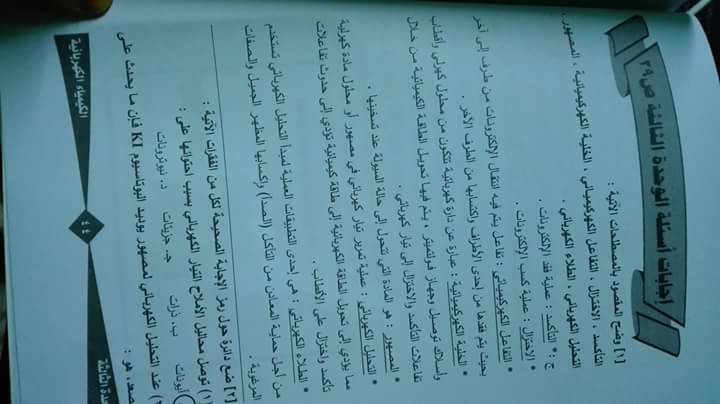 إجابات أسئلة الوحدة الثالثة ص٣٩
[١] وضح المقصود بالمصطلحات الآتية :
التأكسد ، الاختزال ، التفاعل الكهركيميائي ، الخلية الكهركيميائية ، المصهور ،
التحليل الكهربائي ، الطلاء الكهربائي .
ج : * التأكسد : عملية فقد الإلكترونات .
* الاختزال : عملية كسب الإلكترونات .
* التفاعل الكهركيميائي : تفاعل يتم فيه انتقال الإلكترونات من طرف إلى آخر
بحيث يتم فقدها من إحدى الأطراف واكتسابها من الطرف الآخر .
* الخلية الكهركيميائية : عبارة عن دائرة كهربائية تتكون من محلول كهرلي وأقطاب
وأسلاك توصيل وجهاز فولتميتر ، يتم فيها تحويل الطاقة الكيميائية من خلال
تفاعلات التأكسد والاختزال إلى تيار كهربائي .
* المصهور : هو المادة التي تتحول إلى حالة السيولة عند تسخينها .
* التحليل الكهربائي : عملية تمرير تيار كهربائي في مصهور أو محلول مادة كهرلية
مما يؤدي إلى تحويل الطاقة الكهربائية إلى طاقة كيميائية تؤدي إلى حدوث تفاعلات
تأكسد واختزال على الأقطاب .
* الطلاء الكهربائي : هي إحدى التطبيقات العملية لمبدأ التحليل الكهربائي تستخدم
من أجل حماية المعادن من التآكل (الصدأ) وإكسابها المظهر الجميل والصفات
المرغوبة .
[٢] ضع دائرة حول رمز الإجابة الصحيحة لكل من الفقرات الآتية :
١) توصل محاليل الأملاح التيار الكهربائي بسبب احتوائها على :
أيونات ب. ذرات جـ. جزيئات د. نيوترونات
٢) عند التحليل الكهربائي لمصهور يوديد البوتاسيوم KI فإن ما يحدث على
صعد، هو :
الكيمياء الكهربائية
٤٤
حدة الثالثة